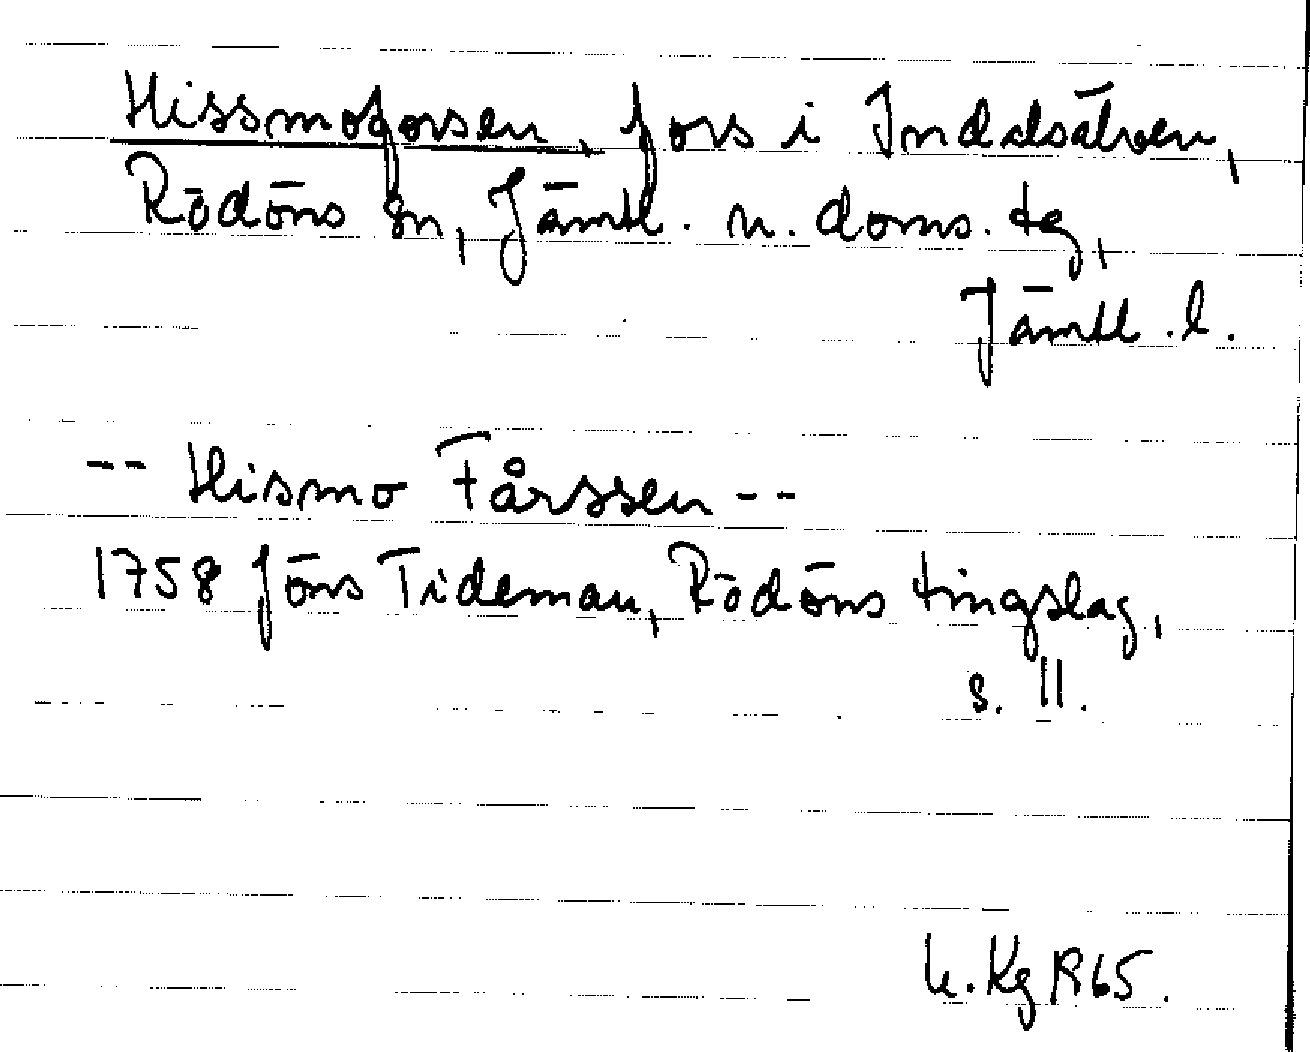 Hissmoforsen, fors i Indalsälven,
Rödöns sn, Jämtl. n. doms. tg,
Jämtl. l.
-- Hismo Fårssen --
1758 Jöns Tideman, Rödöns tingslag,
s. 11.
Kg 1965.